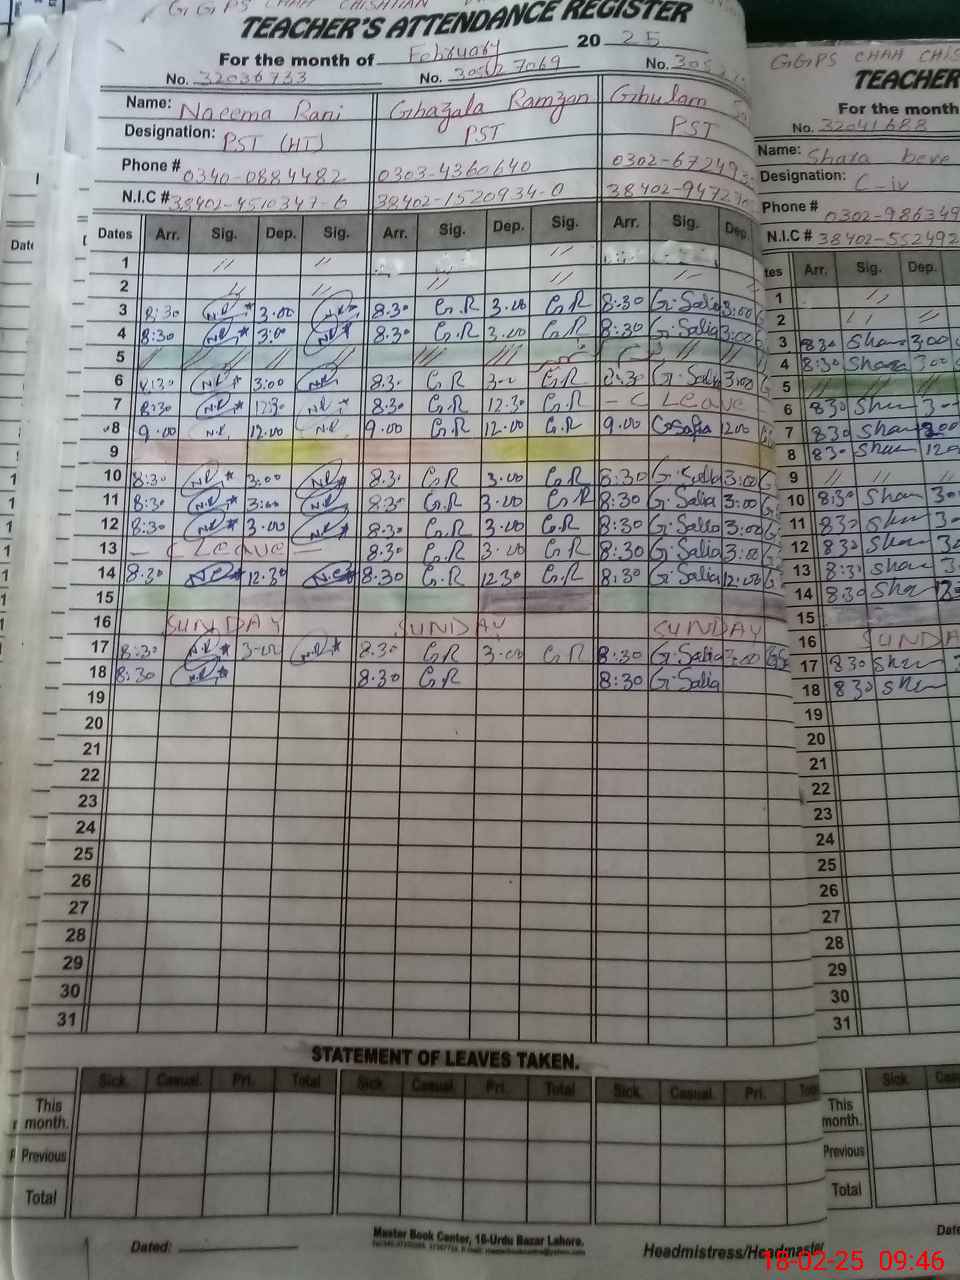 GGPS CHAH CHISHTIAN
TEACHER'S ATTENDANCE REGISTER
For the month of February 20 25
No. 32036733 No. No. 305
Name: Naeema Rani Ghazala Ramzan Ghulam
Designation: PST (HT) PST PST
Phone # 0340-0884482 0303-4360640 0302-672493
N.I.C # 38402-4510347-6 38402-1520934-0 38402-9472
Dates Arr. Sig. Dep. Sig. Arr. Sig. Dep. Sig. Arr. Sig. Dep.
1 // // //
2 // // // // //
3 8:30 N.R 3.00 8.30 G.R 3.00 G.R 8:30 G.Safia 3:00
4 8:30 N.R 3:00 N.R 8.30 G.R 3.00 G.R 8:30 G.Safia 3:00
5 // // // // /// /// // //
6 8:30 N.R 3:00 N.R 8.30 G.R 3.00 G.R 8:30 G.Safia 3:00
7 8:30 N.R 12:30 N.R 8.30 G.R 12.30 G.R - C Leave -
8 9.00 N.R 12.00 N.R 9.00 G.R 12.00 G.R 9.00 G Safia 12.00
9
10 8:30 N.R 3:00 N.R 8.30 G.R 3.00 G.R 8:30 G.Safia 3:00
11 8:30 N.R 3:00 N.R 8.30 G.R 3.00 G.R 8:30 G.Safia 3:00
12 8:30 N.R 3.00 N.R 8.30 G.R 3.00 G.R 8:30 G.Safia 3:00
13 - C Leave - 8.30 G.R 3.00 G.R 8:30 G.Safia 3:00
14 8.30 N.R 12.30 N.R 8.30 G.R 12.30 G.R 8:30 G.Safia
15
16 SUNDAY SUNDAY SUNDAY
17 8:30 N.R 3.00 N.R 8.30 G.R 3.00 G.R 8:30 G.Safia 3:00
18 8:30 N.R 8.30 G.R 8:30 G.Safia
19
20
21
22
23
24
25
26
27
28
29
30
31
STATEMENT OF LEAVES TAKEN.
Sick. Casual. Pri. Total Sick. Casual. Pri. Total Sick. Casual. Pri.
This month.
Previous
Total
Dated:
Master Book Center, 16-Urdu Bazar Lahore.
Headmistress/Headmaster
GGPS CHAH CHIS
TEACHER
For the month
No. 32041688
Name:
Designation: C-iv
Phone # 0302-986349
N.I.C # 38402-552492
Arr. Sig. Dep.
1 //
2 //
3 830 Shan 3.00
4 8:30 300
5 // // //
6 830 Shan
7 830 Shan
8 830 Shan
9 // // //
10 8:30 Shan
11 830 Shan
12 830 Shan
13 8:30 Shan
14 830 Shan
15
16 SUNDA
17 830 Shan
18 830 Shan
19
20
21
22
23
24
25
26
27
28
29
30
31
Sick.
This month.
Previous
Total
18-02-25 09:46